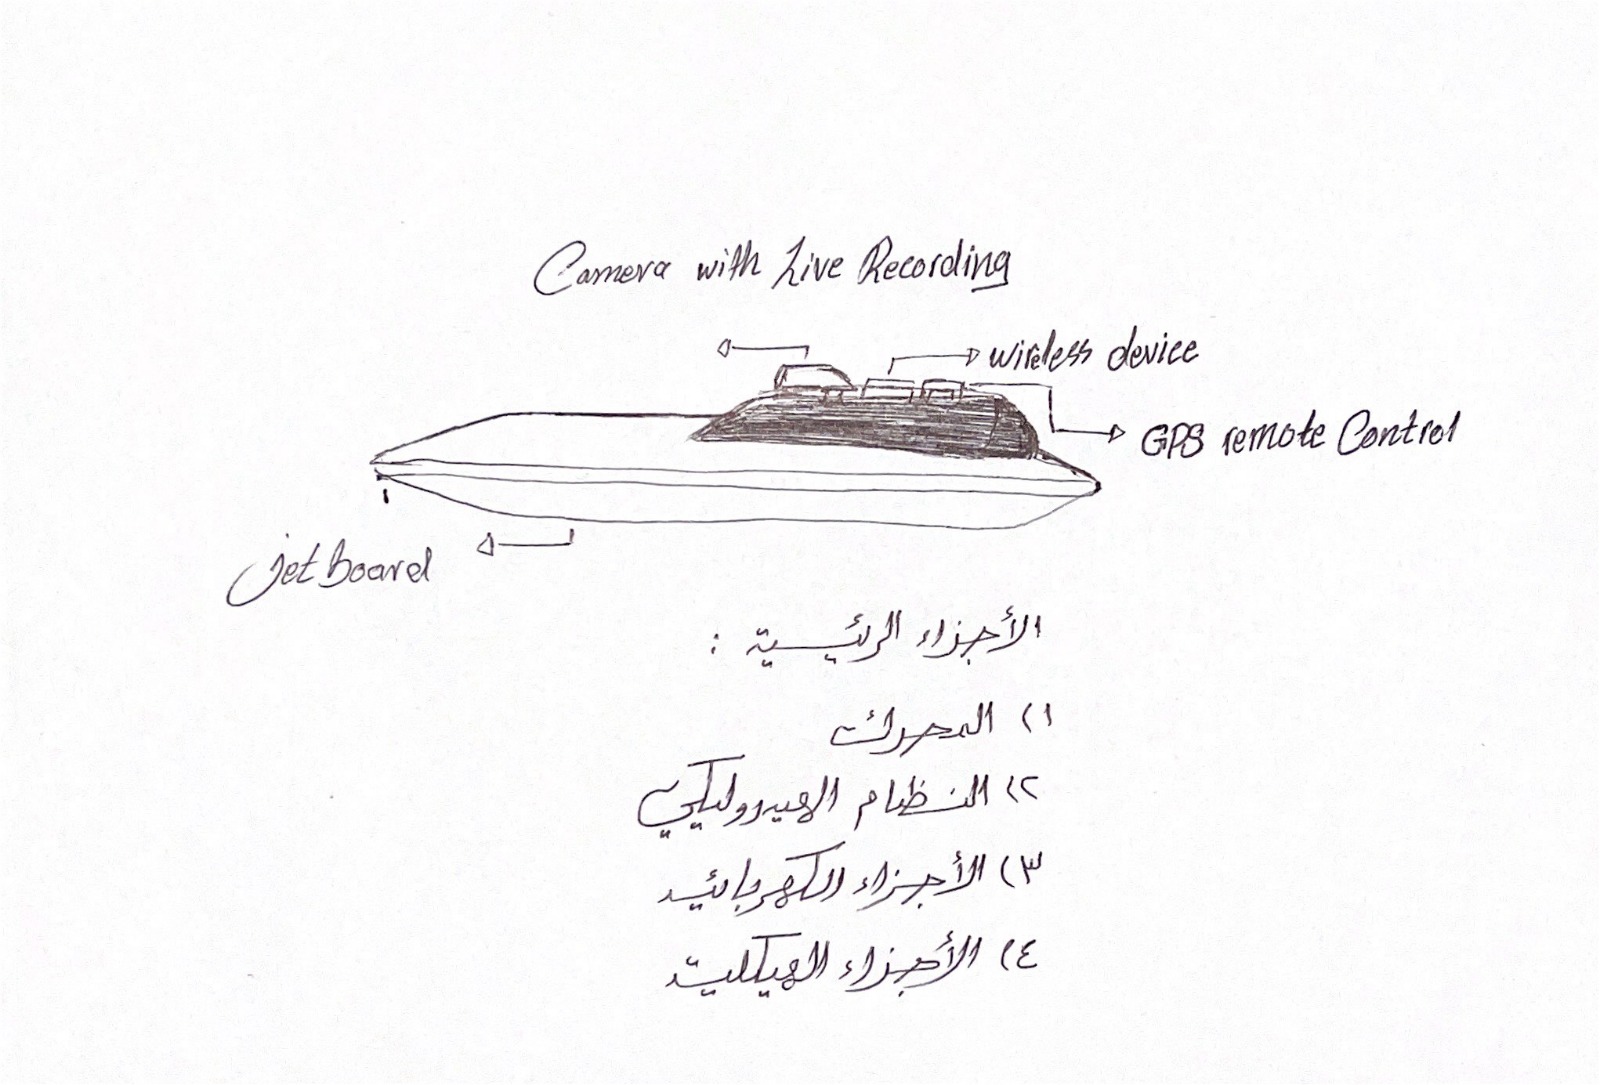 Camera with Live Recording
wireless device
GPS remote Control
jet board
الأجزاء الرئيسية :
١) المحرك
٢) النظام الهيدروليكي
٣) الأجزاء الكهربائية
٤) الأجزاء الهيكلية